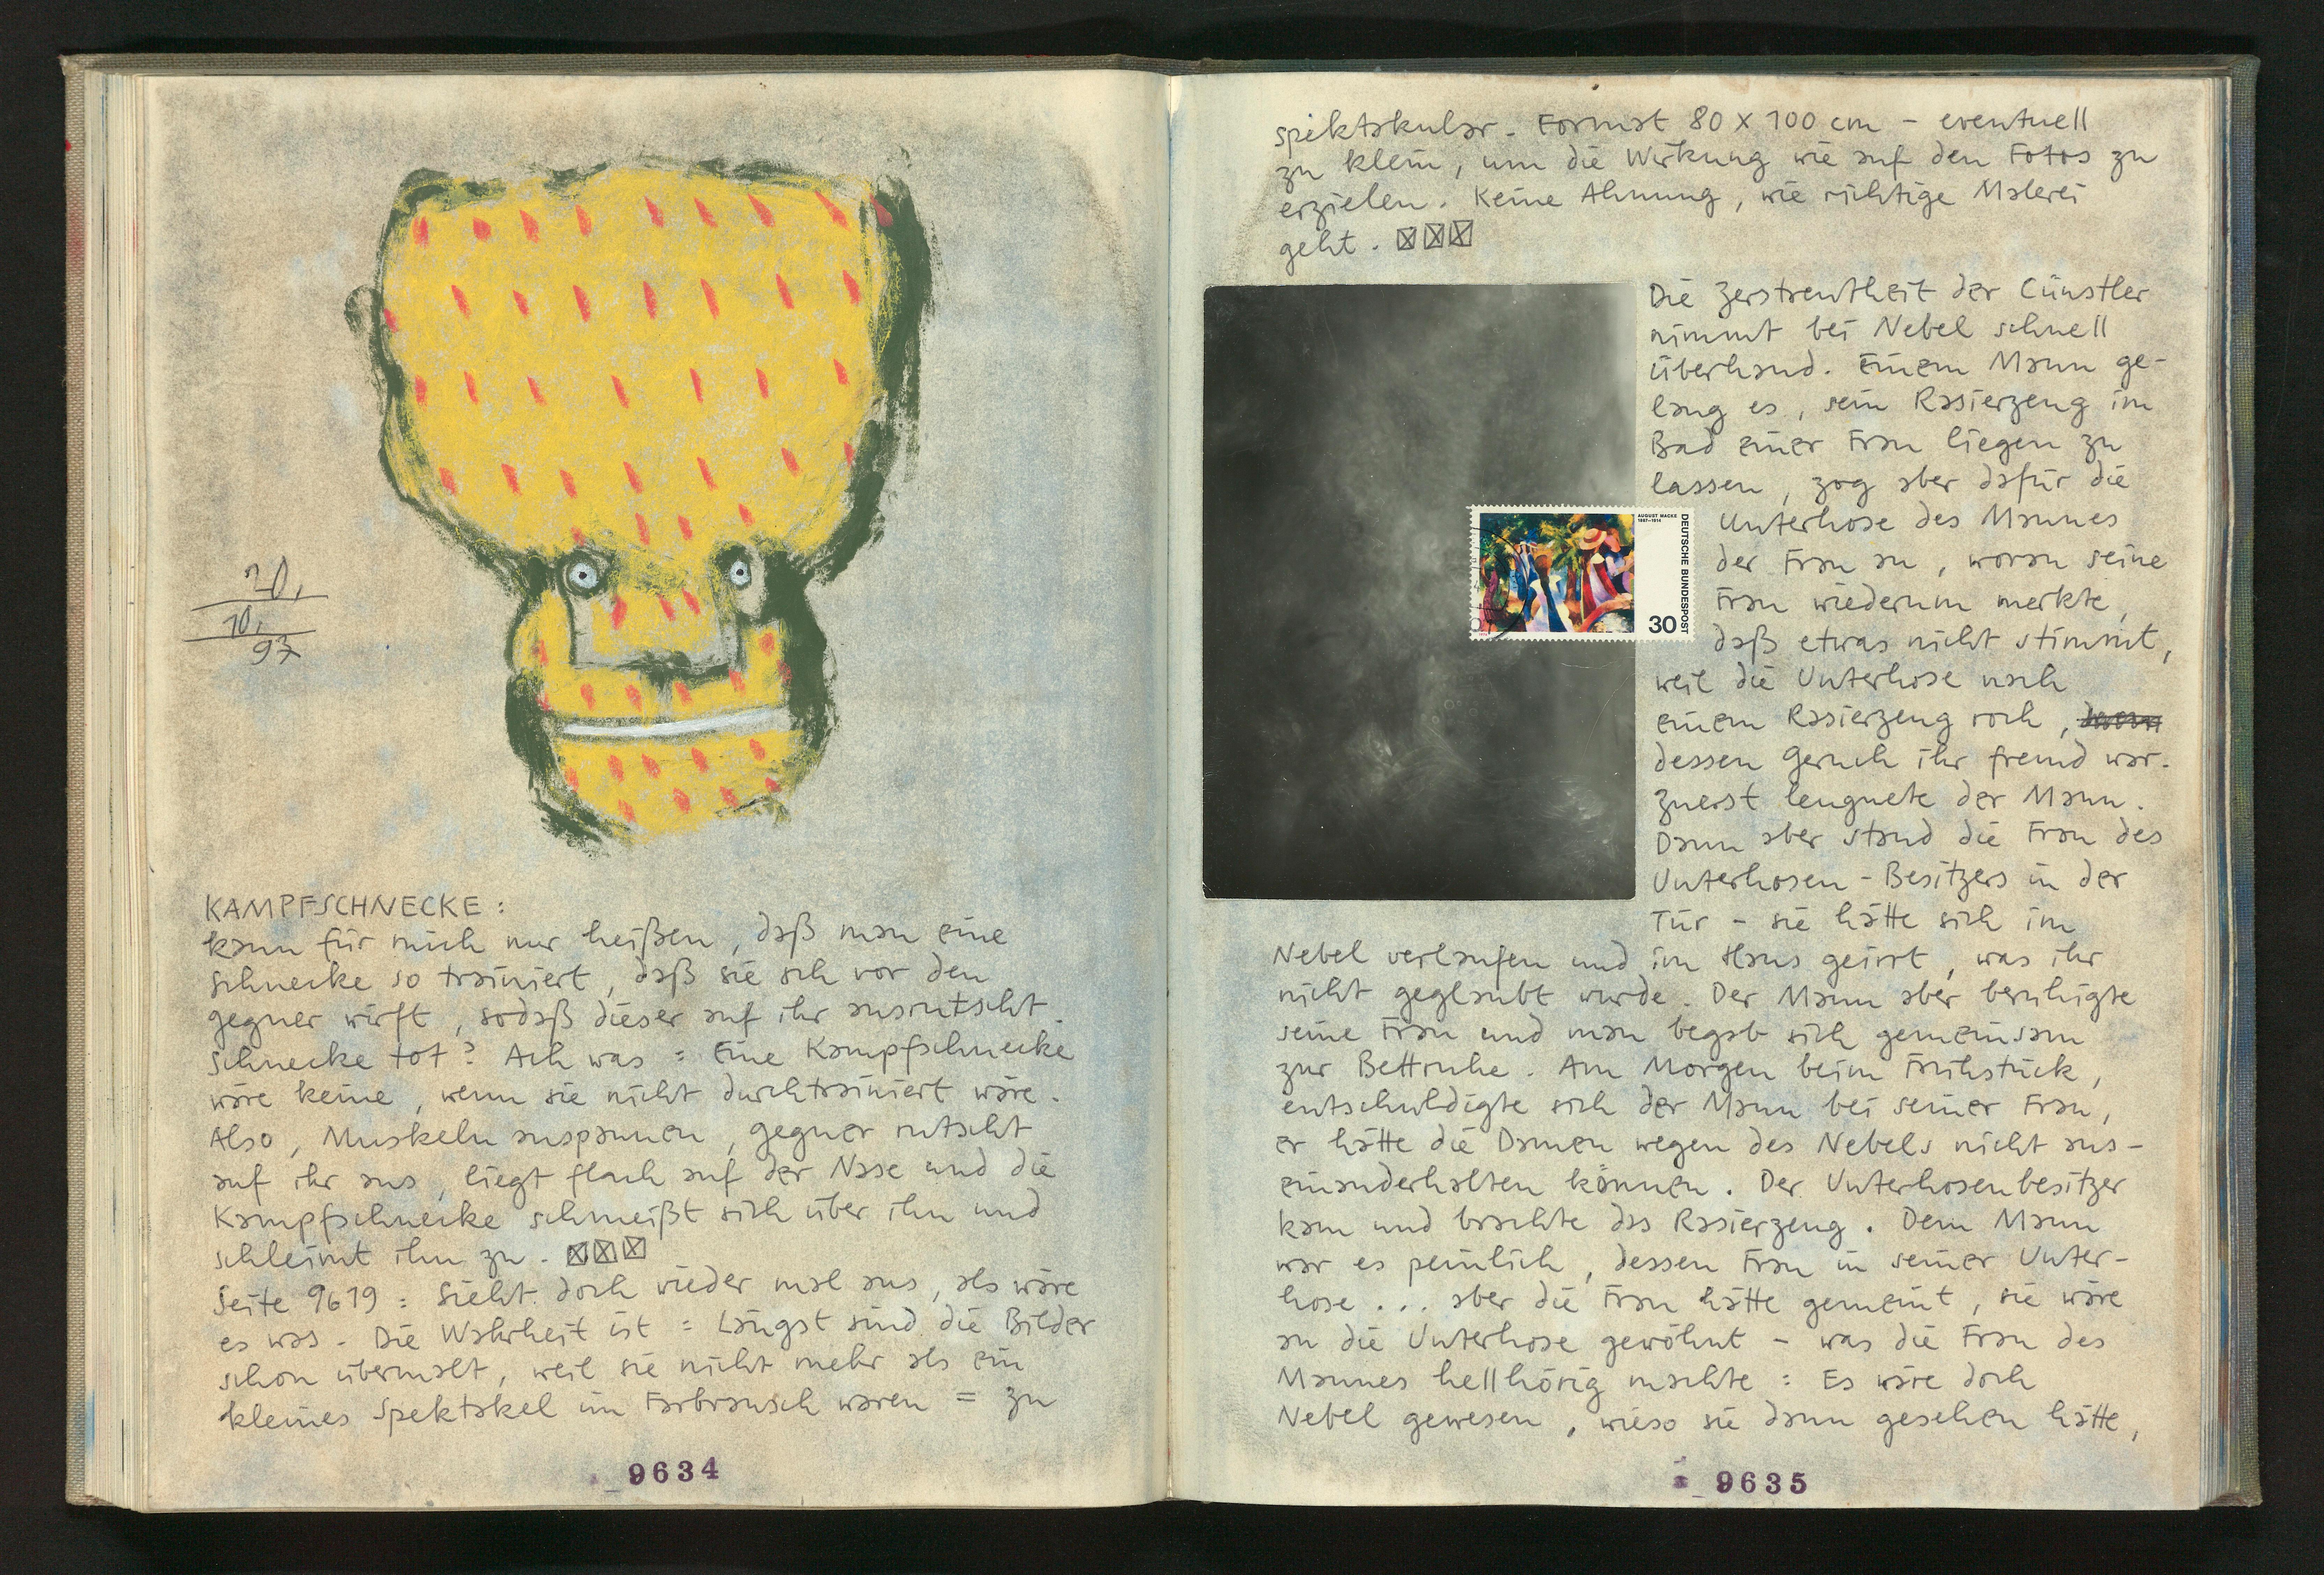 20.
10.
97
KAMPFSCHNECKE :
kann für mich nur heißen, daß man eine
schnecke so trainiert, daß sie sich vor den
gegner wirft, sodaß dieser auf ihr ausrutscht.
schnecke tot? Ach was : Eine Kampfschnecke
wäre keine, wenn sie nicht durchtrainiert wäre.
Also, Muskeln anspannen, gegner rutscht
auf ihr aus, liegt flach auf der Nase und die
Kampfschnecke schmeißt sich über ihn und
schleimt ihn zu. ☒☒☒
Seite 9619 : Sieht doch wieder mal aus, als wäre
es was. Die Wahrheit ist : Längst sind die Bilder
schon übermalt, weil sie nicht mehr als ein
kleines Spektakel im Farbrausch waren = zu
9634
spektakulär. Format 80 x 100 cm - eventuell
zu klein, um die Wirkung wie auf den Fotos zu
erzielen. Keine Ahnung, wie richtige Malerei
geht. ☒☒☒
Die Zerstreutheit der Cünstler
nimmt bei Nebel schnell
überhand. Einem Mann ge-
lang es, sein Rasierzeug im
Bad einer Frau liegen zu
lassen, zog aber dafür die
Unterhose des Mannes
der Frau an, woran seine
Frau wiederum merkte,
daß etwas nicht stimmt,
weil die Unterhose nach
einem Rasierzeug roch,
dessen Geruch ihr fremd war.
Zuerst leugnete der Mann.
Dann aber stand die Frau des
Unterhosen-Besitzers in der
Tür - sie hätte sich im
Nebel verlaufen und im Haus geirrt, was ihr
nicht geglaubt wurde. Der Mann aber beruhigte
seine Frau und man begab sich gemeinsam
zur Bettruhe. Am Morgen beim Frühstück,
entschuldigte sich der Mann bei seiner Frau,
er hätte die Damen wegen des Nebels nicht aus-
einanderhalten können. Der Unterhosenbesitzer
kam und brachte das Rasierzeug. Dem Mann
war es peinlich, dessen Frau in seiner Unter-
hose ... aber die Frau hätte gemeint, sie wäre
an die Unterhose gewöhnt - was die Frau des
Mannes hellhörig machte : Es wäre doch
Nebel gewesen, wieso sie dann gesehen hätte,
AUGUST MACKE
1887-1914
DEUTSCHE BUNDESPOST
30
9635